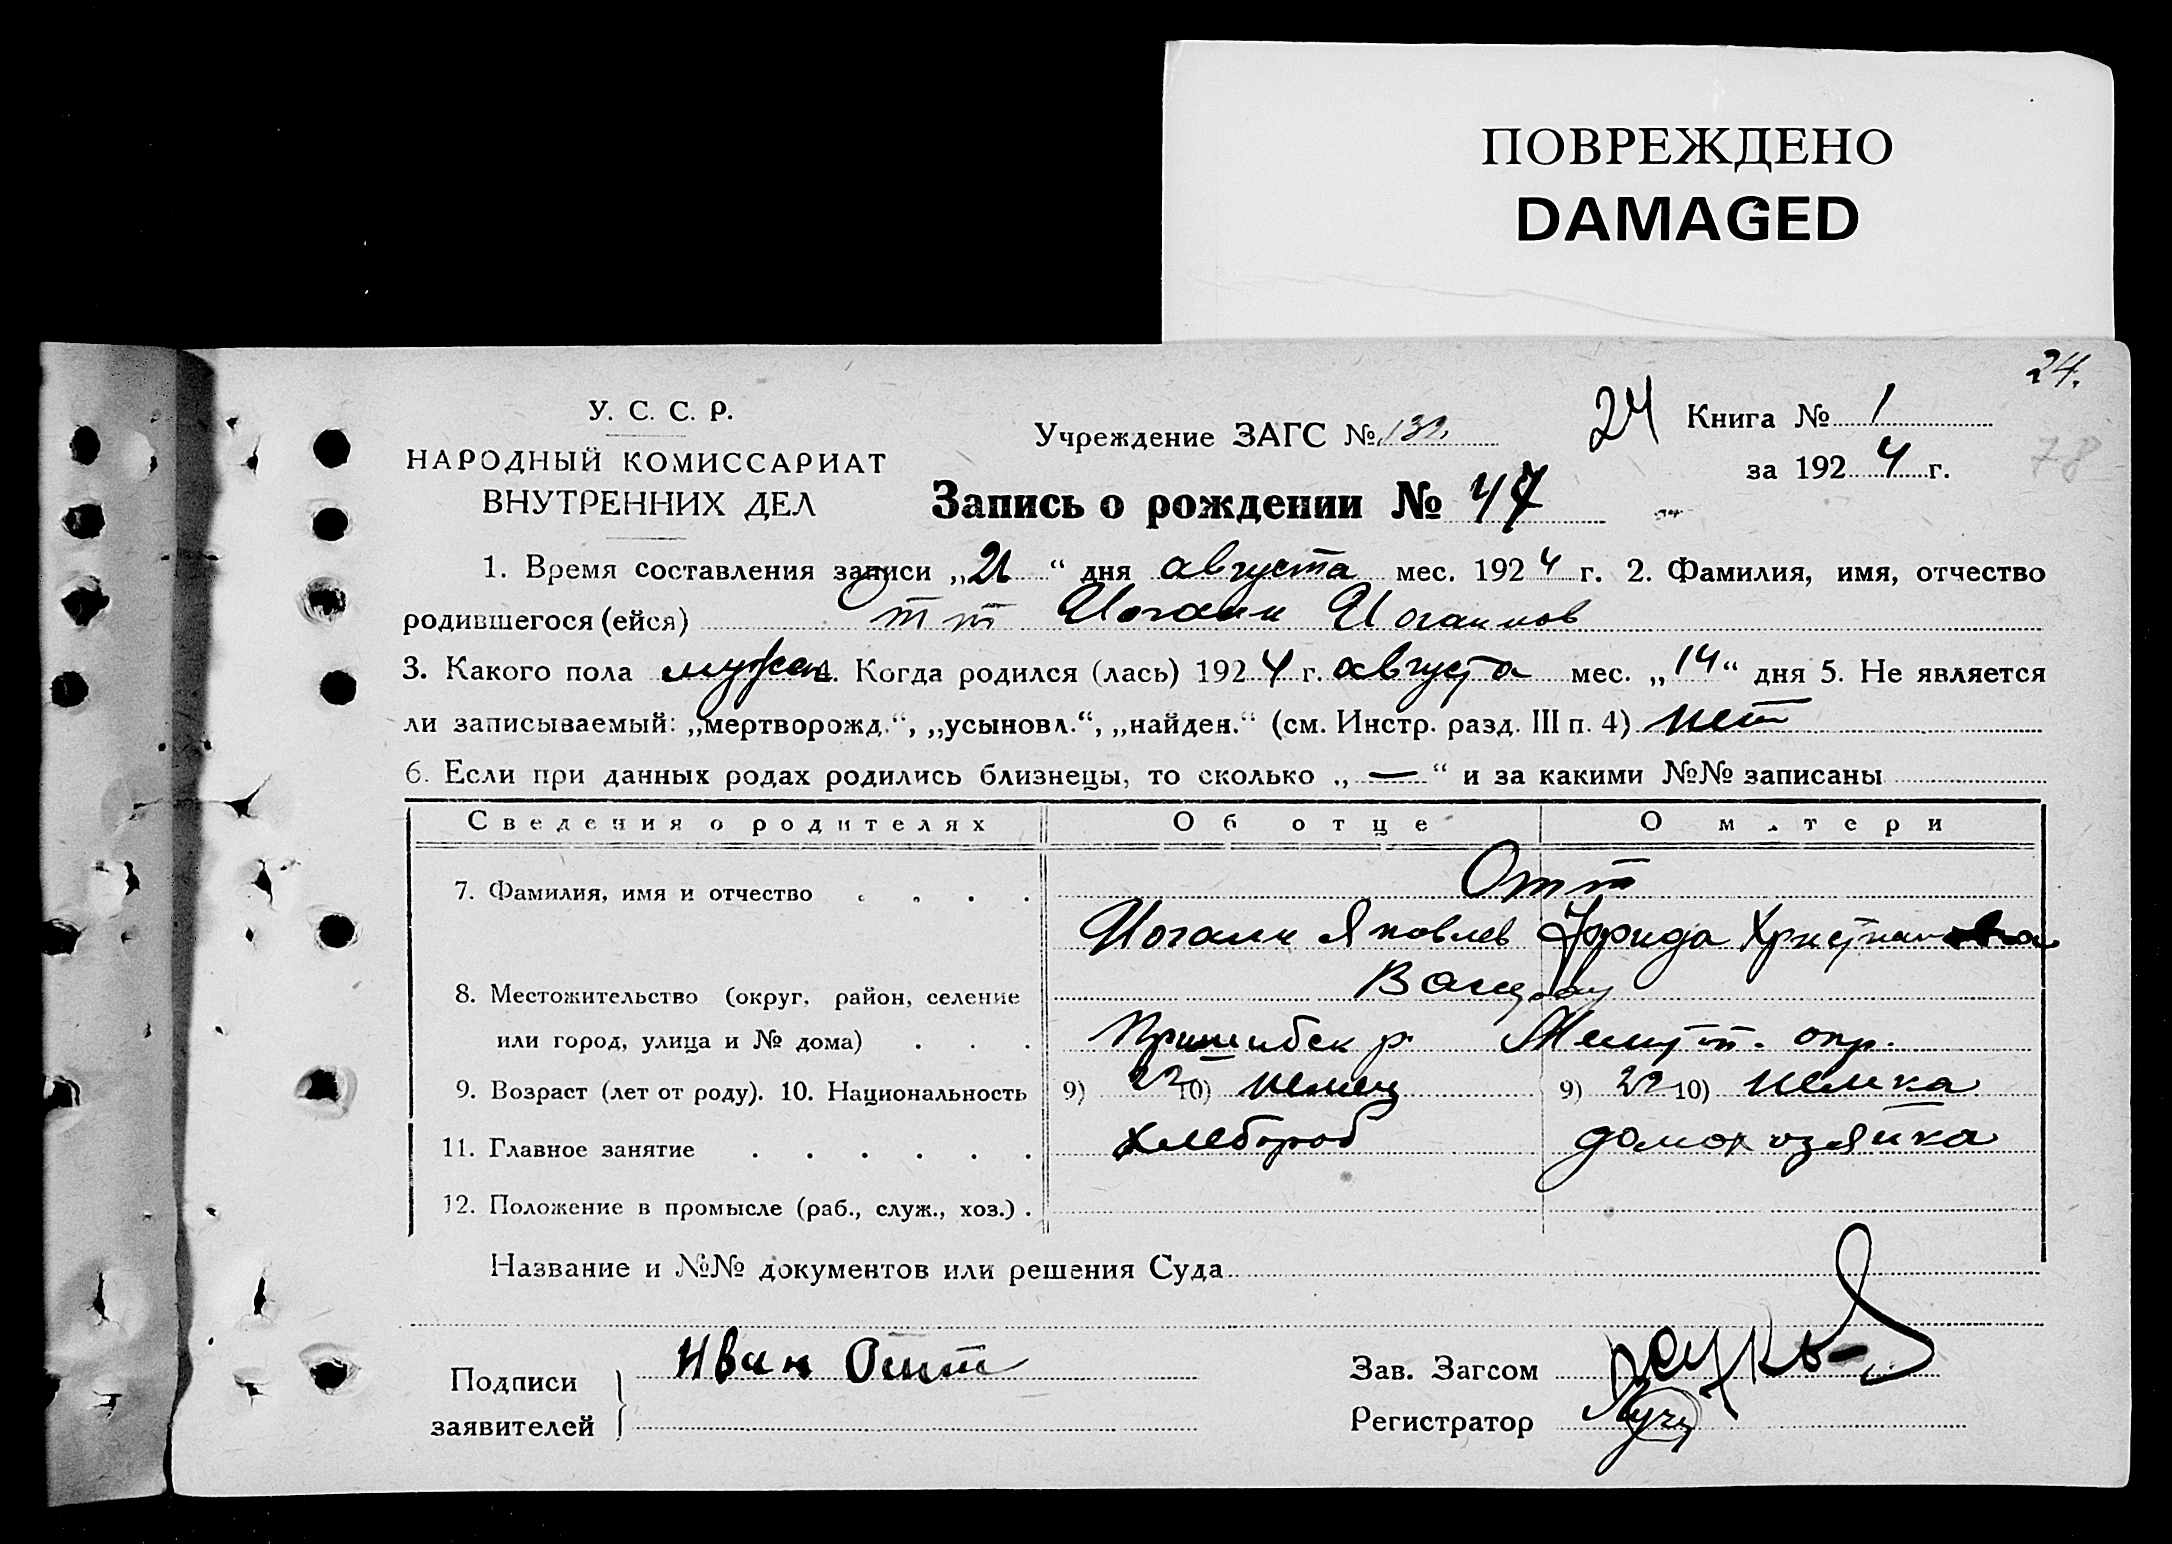 ПОВРЕЖДЕНО
DAMAGED
24.
У. С. С. Р.
НАРОДНЫЙ КОМИССАРИАТ
ВНУТРЕННИХ ДЕЛ
Учреждение ЗАГС № 132.
24 Книга № 1
за 1924 г.
78
Запись о рождении № 47
1. Время составления записи „21“ дня августа мес. 1924 г. 2. Фамилия, имя, отчество
родившегося (ейся) Отт Иоганн Иоганнов
3. Какого пола мужск 4. Когда родился (лась) 1924 г. августа мес. „14“ дня 5. Не является
ли записываемый: „мертворожд.“, „усыновл.“, „найден.“ (см. Инстр. разд. III п. 4) нет
6. Если при данных родах родились близнецы, то сколько „—“ и за какими №№ записаны
Сведения о родителях Об отце О матери
7. Фамилия, имя и отчество . . . . Отт
Иоганн Яковлев Фрида Христиановна
8. Местожительство (округ, район, селение
или город, улица и № дома) . . . Пришибск р. Мелит. окр.
9. Возраст (лет от роду). 10. Национальность 9) 22 10) немец 9) 22 10) немка
11. Главное занятие . . . . . . хлебороб домохозяйка
12. Положение в промысле (раб., служ., хоз.) .
Название и №№ документов или решения Суда
Подписи Иван Отт Зав. Загсом
заявителей Регистратор